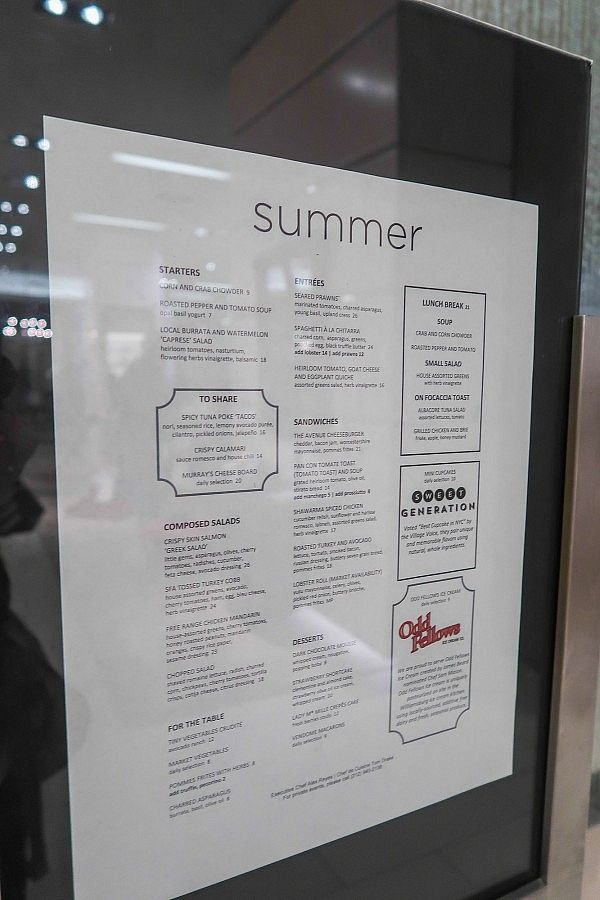 summer
STARTERS
CORN AND CRAB CHOWDER 9
ROASTED PEPPER AND TOMATO SOUP
opal basil yogurt 7
LOCAL BURRATA AND WATERMELON
'CAPRESE' SALAD
heirloom tomatoes, nasturtium,
flowering herbs vinaigrette, balsamic 18
TO SHARE
SPICY TUNA POKE 'TACOS'
nori, seasoned rice, lemony avocado purée,
cilantro, pickled onions, jalapeño 16
CRISPY CALAMARI
sauce romesco and house chili 14
MURRAY'S CHEESE BOARD
daily selection 20
COMPOSED SALADS
CRISPY SKIN SALMON
'GREEK SALAD'
little gems, asparagus, olives, cherry
tomatoes, radishes, cucumber,
feta cheese, avocado dressing 26
SFA TOSSED TURKEY COBB
house assorted greens, avocado,
cherry tomatoes, ham, egg, bleu cheese,
herb vinaigrette 24
FREE RANGE CHICKEN MANDARIN
house-assorted greens, cherry tomatoes,
honey roasted peanuts, mandarin
oranges, crispy rice paper,
sesame dressing 23
CHOPPED SALAD
shaved romaine lettuce, radish, churred
corn, chickpeas, cherry tomatoes, tortilla
crisps, cotija cheese, citrus dressing 18
FOR THE TABLE
TINY VEGETABLES CRUDITÉ
avocado ranch 12
MARKET VEGETABLES
daily selection 8
POMMES FRITES WITH HERBS 8
add truffle, pecorino 2
CHARRED ASPARAGUS
burrata, basil, olive oil 8
ENTRÉES
SEARED PRAWNS
marinated tomatoes, charred asparagus,
young basil, upland cress 26
SPAGHETTI À LA CHITARRA
charred corn, asparagus, greens,
poached egg, black truffle butter 24
add lobster 14 | add prawns 12
HEIRLOOM TOMATO, GOAT CHEESE
AND EGGPLANT QUICHE
assorted greens salad, herb vinaigrette 16
SANDWICHES
THE AVENUE CHEESEBURGER
chedder, bacon jam, worcestershire
mayonnaise, pommes frites 21
PAN CON TOMATE TOAST
(TOMATO TOAST) AND SOUP
grated heirloom tomato, olive oil,
stirato bread 14
add manchego 5 | add prosciutto 6
SHAWARMA SPICED CHICKEN
cucumber relish, sunflower and harissa
romesco, labneh, assorted greens salad,
herb vinaigrette 17
ROASTED TURKEY AND AVOCADO
lettuce, tomato, smoked bacon,
russian dressing, buttery seven grain bread,
pommes frites 18
LOBSTER ROLL (MARKET AVAILABILITY)
yuzu mayonnaise, celery, chives,
pickled red onion, buttery brioche,
pommes frites MP
DESSERTS
DARK CHOCOLATE MOUSSE
whipped cream, nougatine,
popping boba 9
STRAWBERRY SHORTCAKE
clementine and almond cake,
strawberry olive oil ice cream,
whipped cream 10
LADY M® MILLE CREPES CAKE
fresh berries coulis 12
VENDOME MACARONS
daily selection 9
LUNCH BREAK 21
SOUP
CRAB AND CORN CHOWDER
ROASTED PEPPER AND TOMATO
SMALL SALAD
HOUSE ASSORTED GREENS
with herb vinaigrette
ON FOCACCIA TOAST
ALBACORE TUNA SALAD
assorted lettuces, tomato
GRILLED CHICKEN AND BRIE
frisée, apple, honey mustard
MINI CUPCAKES
daily selection 10
SWEET
GENERATION
Voted "Best Cupcake in NYC" by
the Village Voice, they pair unique
and memorable flavors using
natural, whole ingredients.
ODD FELLOWS ICE CREAM
daily selection 9
Odd
Fellows
ICE CREAM CO.
We are proud to serve Odd Fellows
Ice Cream created by James Beard
nominated Chef Sam Mason.
Odd Fellows ice cream is uniquely
pasteurized on site in the
Williamsburg ice cream kitchen
using locally-sourced, additive free
dairy and fresh, seasonal produce.
Executive Chef Alex Reyes | Chef de Cuisine Tom Drake
For private events, please call (212) 940-2138